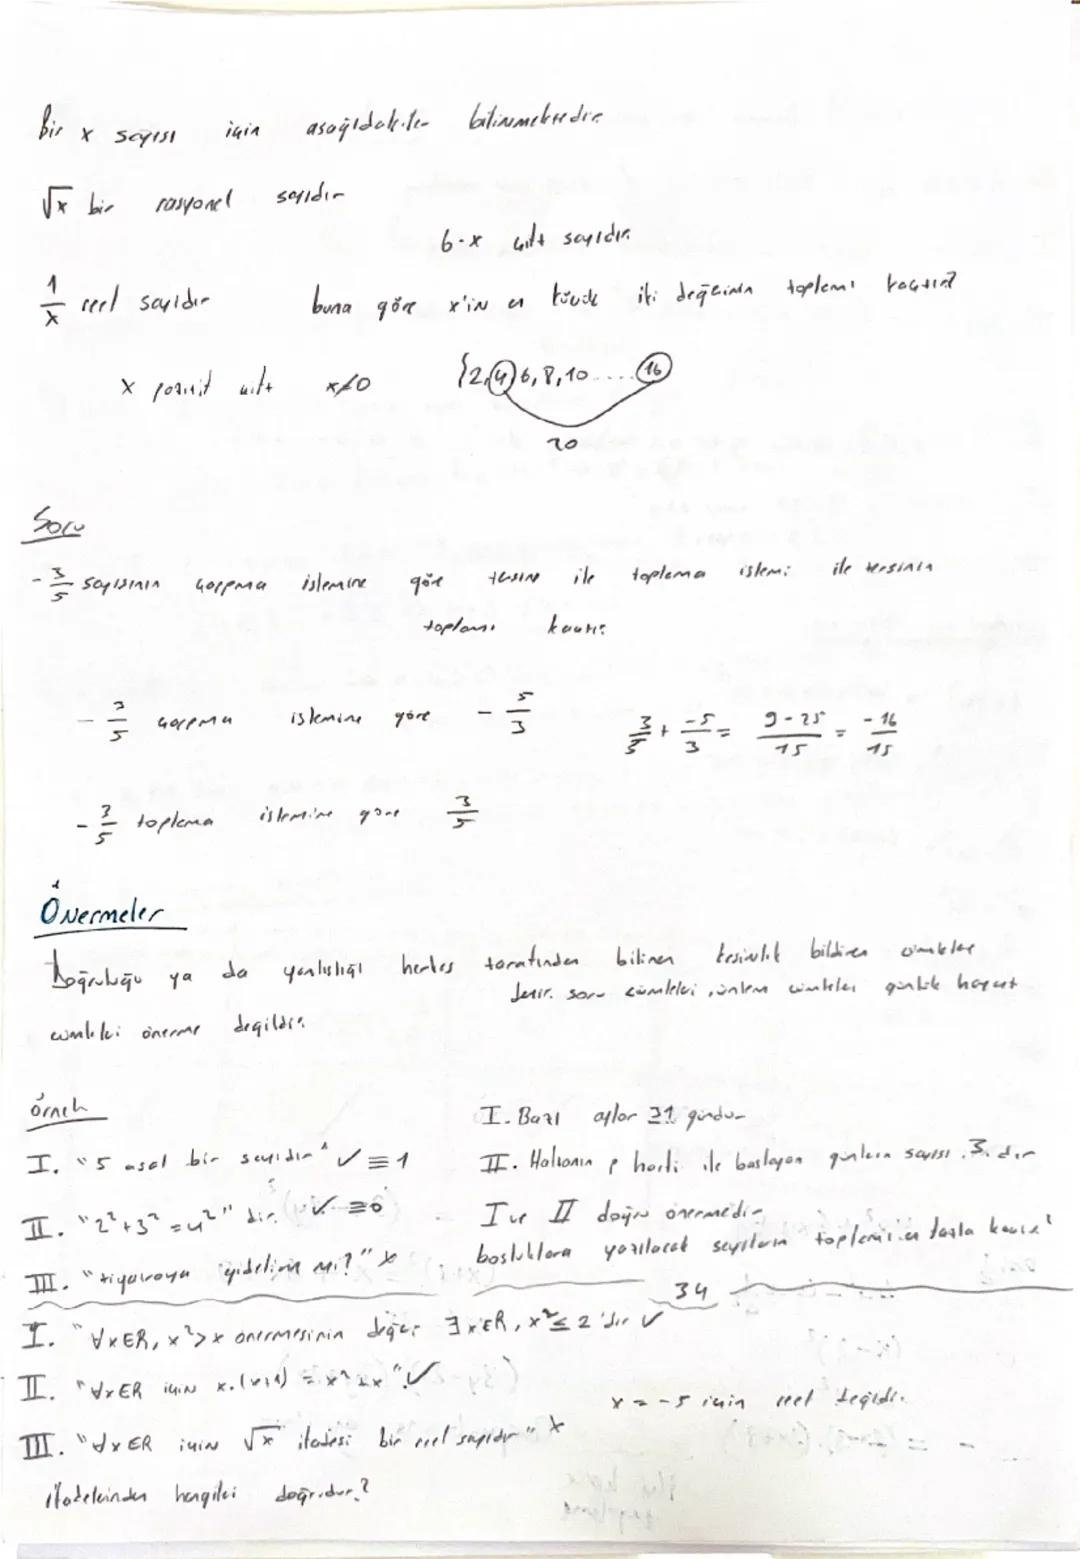 Bir x sayısı için aşağıdakiler bilinmektedir
√x bir rasyonel sayıdır
6·x çift sayıdır.
1/x reel sayıdır buna göre x'in en küçük iki değerinin toplamı kaçtır?
x pozitif çift x≠0 {2,4,6,8,10.....16
20
Soru
-3/5 sayısının çarpma işlemine göre tersine ile toplama işlemi ile tersinin
toplamı kaçtır?
-3/5 çarpma işlemine göre -5/3 3/5 + -5/3 = 9-25/15 = -16/15
-3/5 toplama işlemine göre 3/5
Önermeler
Doğruluğu ya da yanlışlığı herkes tarafından bilinen kesinlik bildiren cümleler
denir. soru cümleleri, ünlem cümleler günlük hayat
cümleleri önerme değildir.
örnek
I. "5 asal bir sayıdır" ✓ ≡ 1
II. "2²+3²=4²" dir. ✓ ≡ 0
III. "tiyatroya gidelim mi?" x
I. Bazı aylar 31 gündür
II. Haftanın p harfi ile başlayan günlerin sayısı .3. dır
I ve II doğru önermedir
boşluklara yazılacak sayıların toplamı en fazla kaçtır?
34
I. "∀x∈R, x²>x önermesinin değili ∃x∈R, x²≤2'dir ✓
II. "∀x∈R için x.(x+1) = x²+x" ✓
x=-5 için reel değildir.
III. "∀x∈R için √x ifadesi bir reel sayıdır" x
ifadelerinden hangileri doğrudur?